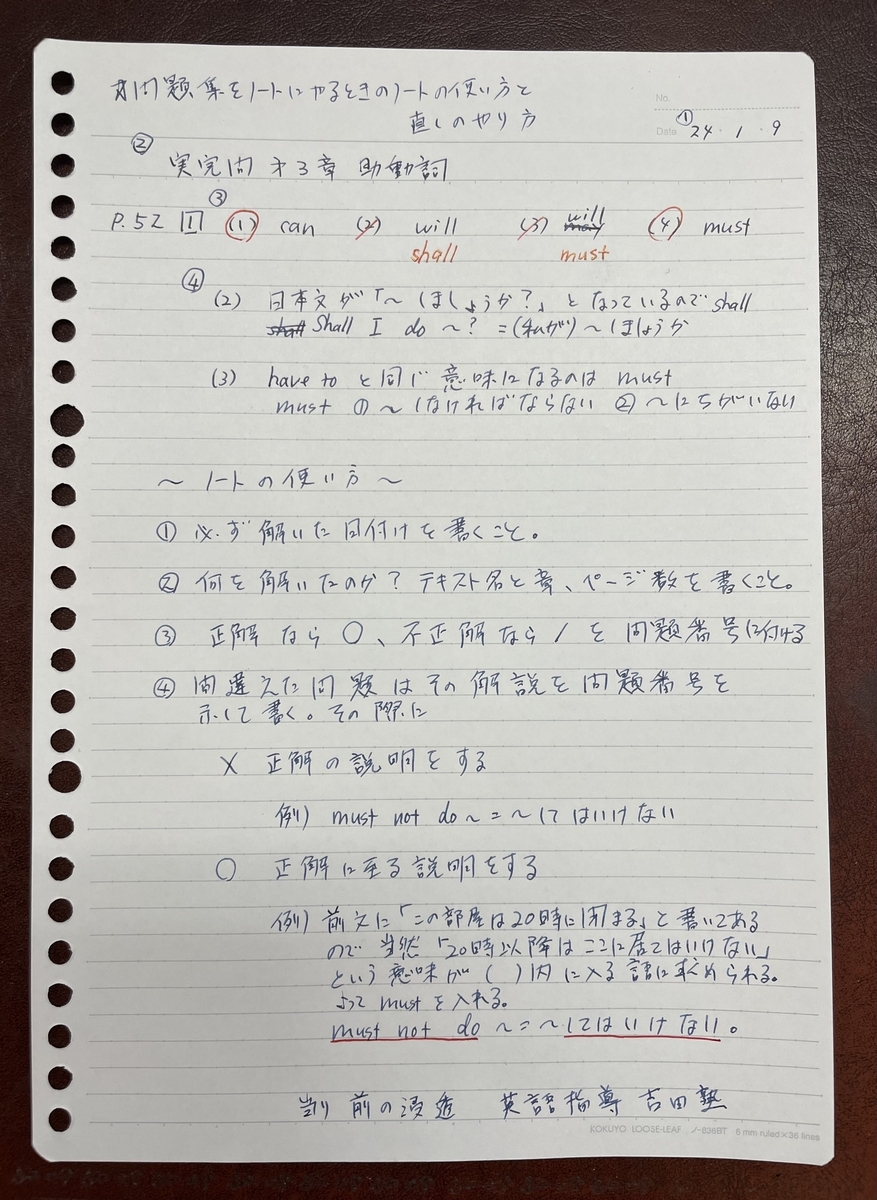 問題集をノートにやるときのノートの使い方と
直しのやり方
No.
Date ① 24・1・9
② 実完問 第3章 助動詞
③
P.52 1 (1) can (2) will (3) will may (4) must
shall must
④ (2) 日本文が「〜しましょうか?」となっているのでshall
shall Shall I do 〜? =(私が)〜しましょうか
(3) have to と同じ意味になるのは must
must ① 〜しなければならない ② 〜にちがいない
〜ノートの使い方〜
① 必ず解いた日付けを書くこと。
② 何を解いたのか?テキスト名と章、ページ数を書くこと。
③ 正解なら○、不正解なら/を問題番号に付ける
④ 間違えた問題はその解説を問題番号を
示して書く。その際に
× 正解の説明をする
例) must not do 〜 = 〜してはいけない
○ 正解に至る説明をする
例) 前文に「この部屋は20時に閉まる」と書いてある
ので当然「20時以降はここに居てはいけない」
という意味が( )内に入る語に求められる。
よって must を入れる。
must not do 〜 = 〜してはいけない。
当り前の浸透 英語指導 吉田塾
KOKUYO LOOSE-LEAF ノ-836BT 6 mm ruled×36 lines